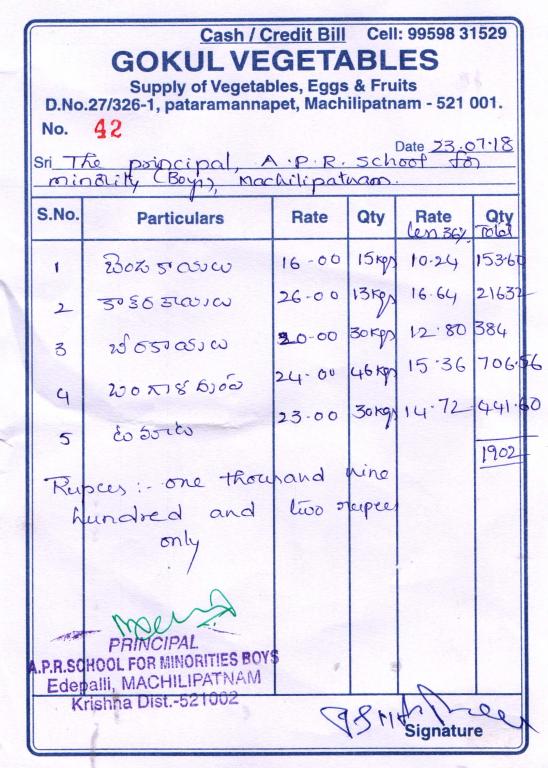 Cash / Credit Bill Cell: 99598 31529
GOKUL VEGETABLES
Supply of Vegetables, Eggs & Fruits
D.No.27/326-1, pataramannapet, Machilipatnam - 521 001.
No. 42
Date 23.07.18
Sri The principal, A.P.R. School for
minority (Boys), Machilipatnam.
S.No. Particulars Rate Qty Rate Qty
Less 36% Total
1 బెండకాయలు 16-00 15kgs 10-24 153.60
2 కాకరకాయలు 26-00 13kgs 16.64 21632
3 బీరకాయలు 20-00 30kgs 12.80 384
4 బంగాళదుంప 24-00 46kgs 15.36 706.56
5 టమాట 23-00 30kgs 14.72 441.60
1902
Rupees :- one thousand nine
hundred and two rupees
only
PRINCIPAL
A.P.R.SCHOOL FOR MINORITIES BOYS
Edepalli, MACHILIPATNAM
Krishna Dist.-521002
Signature